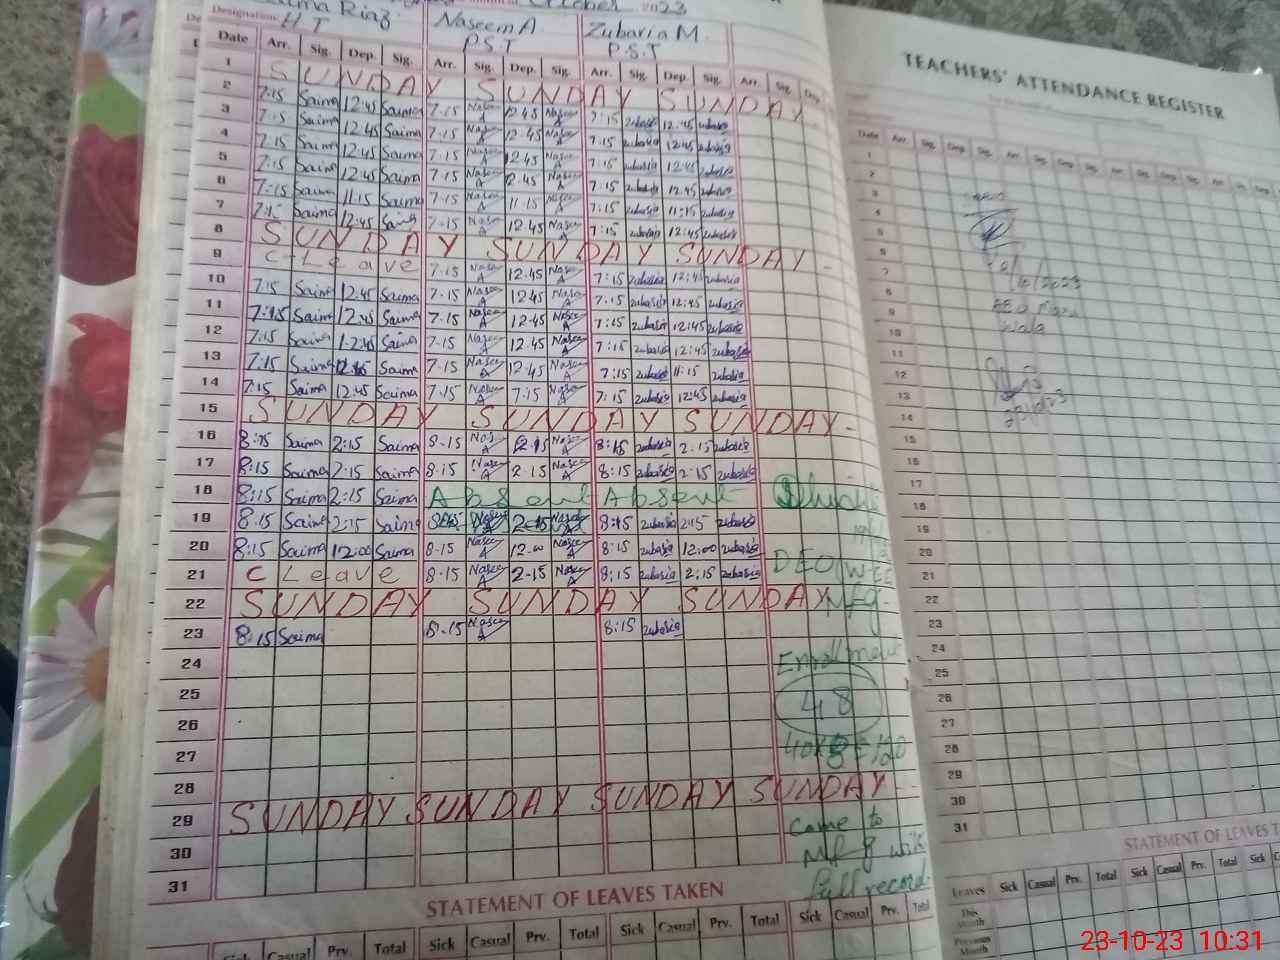 Saima Riaz Naseem A Zubaria M. October 2023
Designation H T P.S.T P.S.T
Date Arr. Sig. Dep. Sig. Arr. Sig. Dep. Sig. Arr. Sig. Dep. Sig. Arr. Sig. Dep.
1 SUNDAY SUNDAY SUNDAY
2 7:15 Saima 12:45 Saima 7.15 Naseem A 12.45 Naseem A 7:15 zubaria 12:45 zubaria
3 7:15 Saima 12:45 Saima 7.15 Naseem A 12.45 Naseem A 7.15 zubaria 12:45 zubaria
4 7:15 Saima 12:45 Saima 7.15 Naseem A 12.45 Naseem A 7:15 zubaria 12:45 zubaria
5 7:15 Saima 12:45 Saima 7.15 Naseem A 12.45 Naseem A 7:15 zubaria 12.45 zubaria
6 7:15 Saima 11:15 Saima 7.15 Naseem A 11.15 Naseem A 7:15 zubaria 11:15 zubaria
7 7:15 Saima 12:45 Saima 7.15 Naseem A 12.45 Naseem A 7:15 zubaria 12:45 zubaria
8 SUNDAY SUNDAY SUNDAY
9 C-Leave 7.15 Naseem A 12.45 Naseem A 7:15 zubaria 12:45 zubaria
10 7:15 Saima 12:45 Saima 7.15 Naseem A 12.45 Naseem A 7:15 zubaria 12:45 zubaria
11 7:15 Saima 12:45 Saima 7.15 Naseem A 12.45 Naseem A 7:15 zubaria 12:45 zubaria
12 7:15 Saima 12:45 Saima 7.15 Naseem A 12.45 Naseem A 7:15 zubaria 12:45 zubaria
13 7:15 Saima Saima 7.15 Naseem A 12.45 Naseem A 7:15 zubaria 11:15 zubaria
14 7:15 Saima 12:45 Saima 7.15 Naseem A 7:15 Naseem A 7:15 zubaria 12:45 zubaria
15 SUNDAY SUNDAY SUNDAY
16 8:15 Saima 2:15 Saima 8.15 Naseem A 2.15 Naseem A 8:15 zubaria 2.15 zubaria
17 8:15 Saima 2:15 Saima 8.15 Naseem A 2.15 Naseem A 8:15 zubaria 2:15 zubaria
18 8:15 Saima 2:15 Saima Absent Absent
19 8:15 Saima 2:15 Saima Naseem 2.15 Naseem 8:15 zubaria 2:15 zubaria
20 8:15 Saima 12:00 Saima 8.15 Naseem A 12.00 Naseem A 8:15 zubaria 12:00 zubaria
21 C Leave 8.15 Naseem A 2.15 Naseem A 8:15 zubaria 2:15 zubaria
DEO (W-EE)
22 SUNDAY SUNDAY SUNDAY
Mfg
23 8:15 Saima 8.15 Naseem A 8:15 zubaria
24
Enrollment
25
48
26
27
40x3=120
28
29 SUNDAY SUNDAY SUNDAY SUNDAY
30
came to
Mfg with
31
full record.
STATEMENT OF LEAVES TAKEN
Sick Casual Prv. Total Sick Casual Prv. Total Sick Casual Prv. Total Sick Casual Prv. Total
TEACHERS' ATTENDANCE REGISTER
Date Arr. Sig. Dep. Sig. Arr. Sig. Dep. Sig. Arr. Sig. Dep. Sig. Arr. Sig. Dep.
1
2
3
4
5
6
7
8
9
10
11
12
13
14
15
16
17
18
19
20
21
22
23
24
25
26
27
28
29
30
31
/10/2023
AEO
Wala
23/10/23
STATEMENT OF LEAVES T
Leaves Sick Casual Prv. Total Sick Casual Prv. Total Sick
This Month
Previous Month
23-10-23 10:31